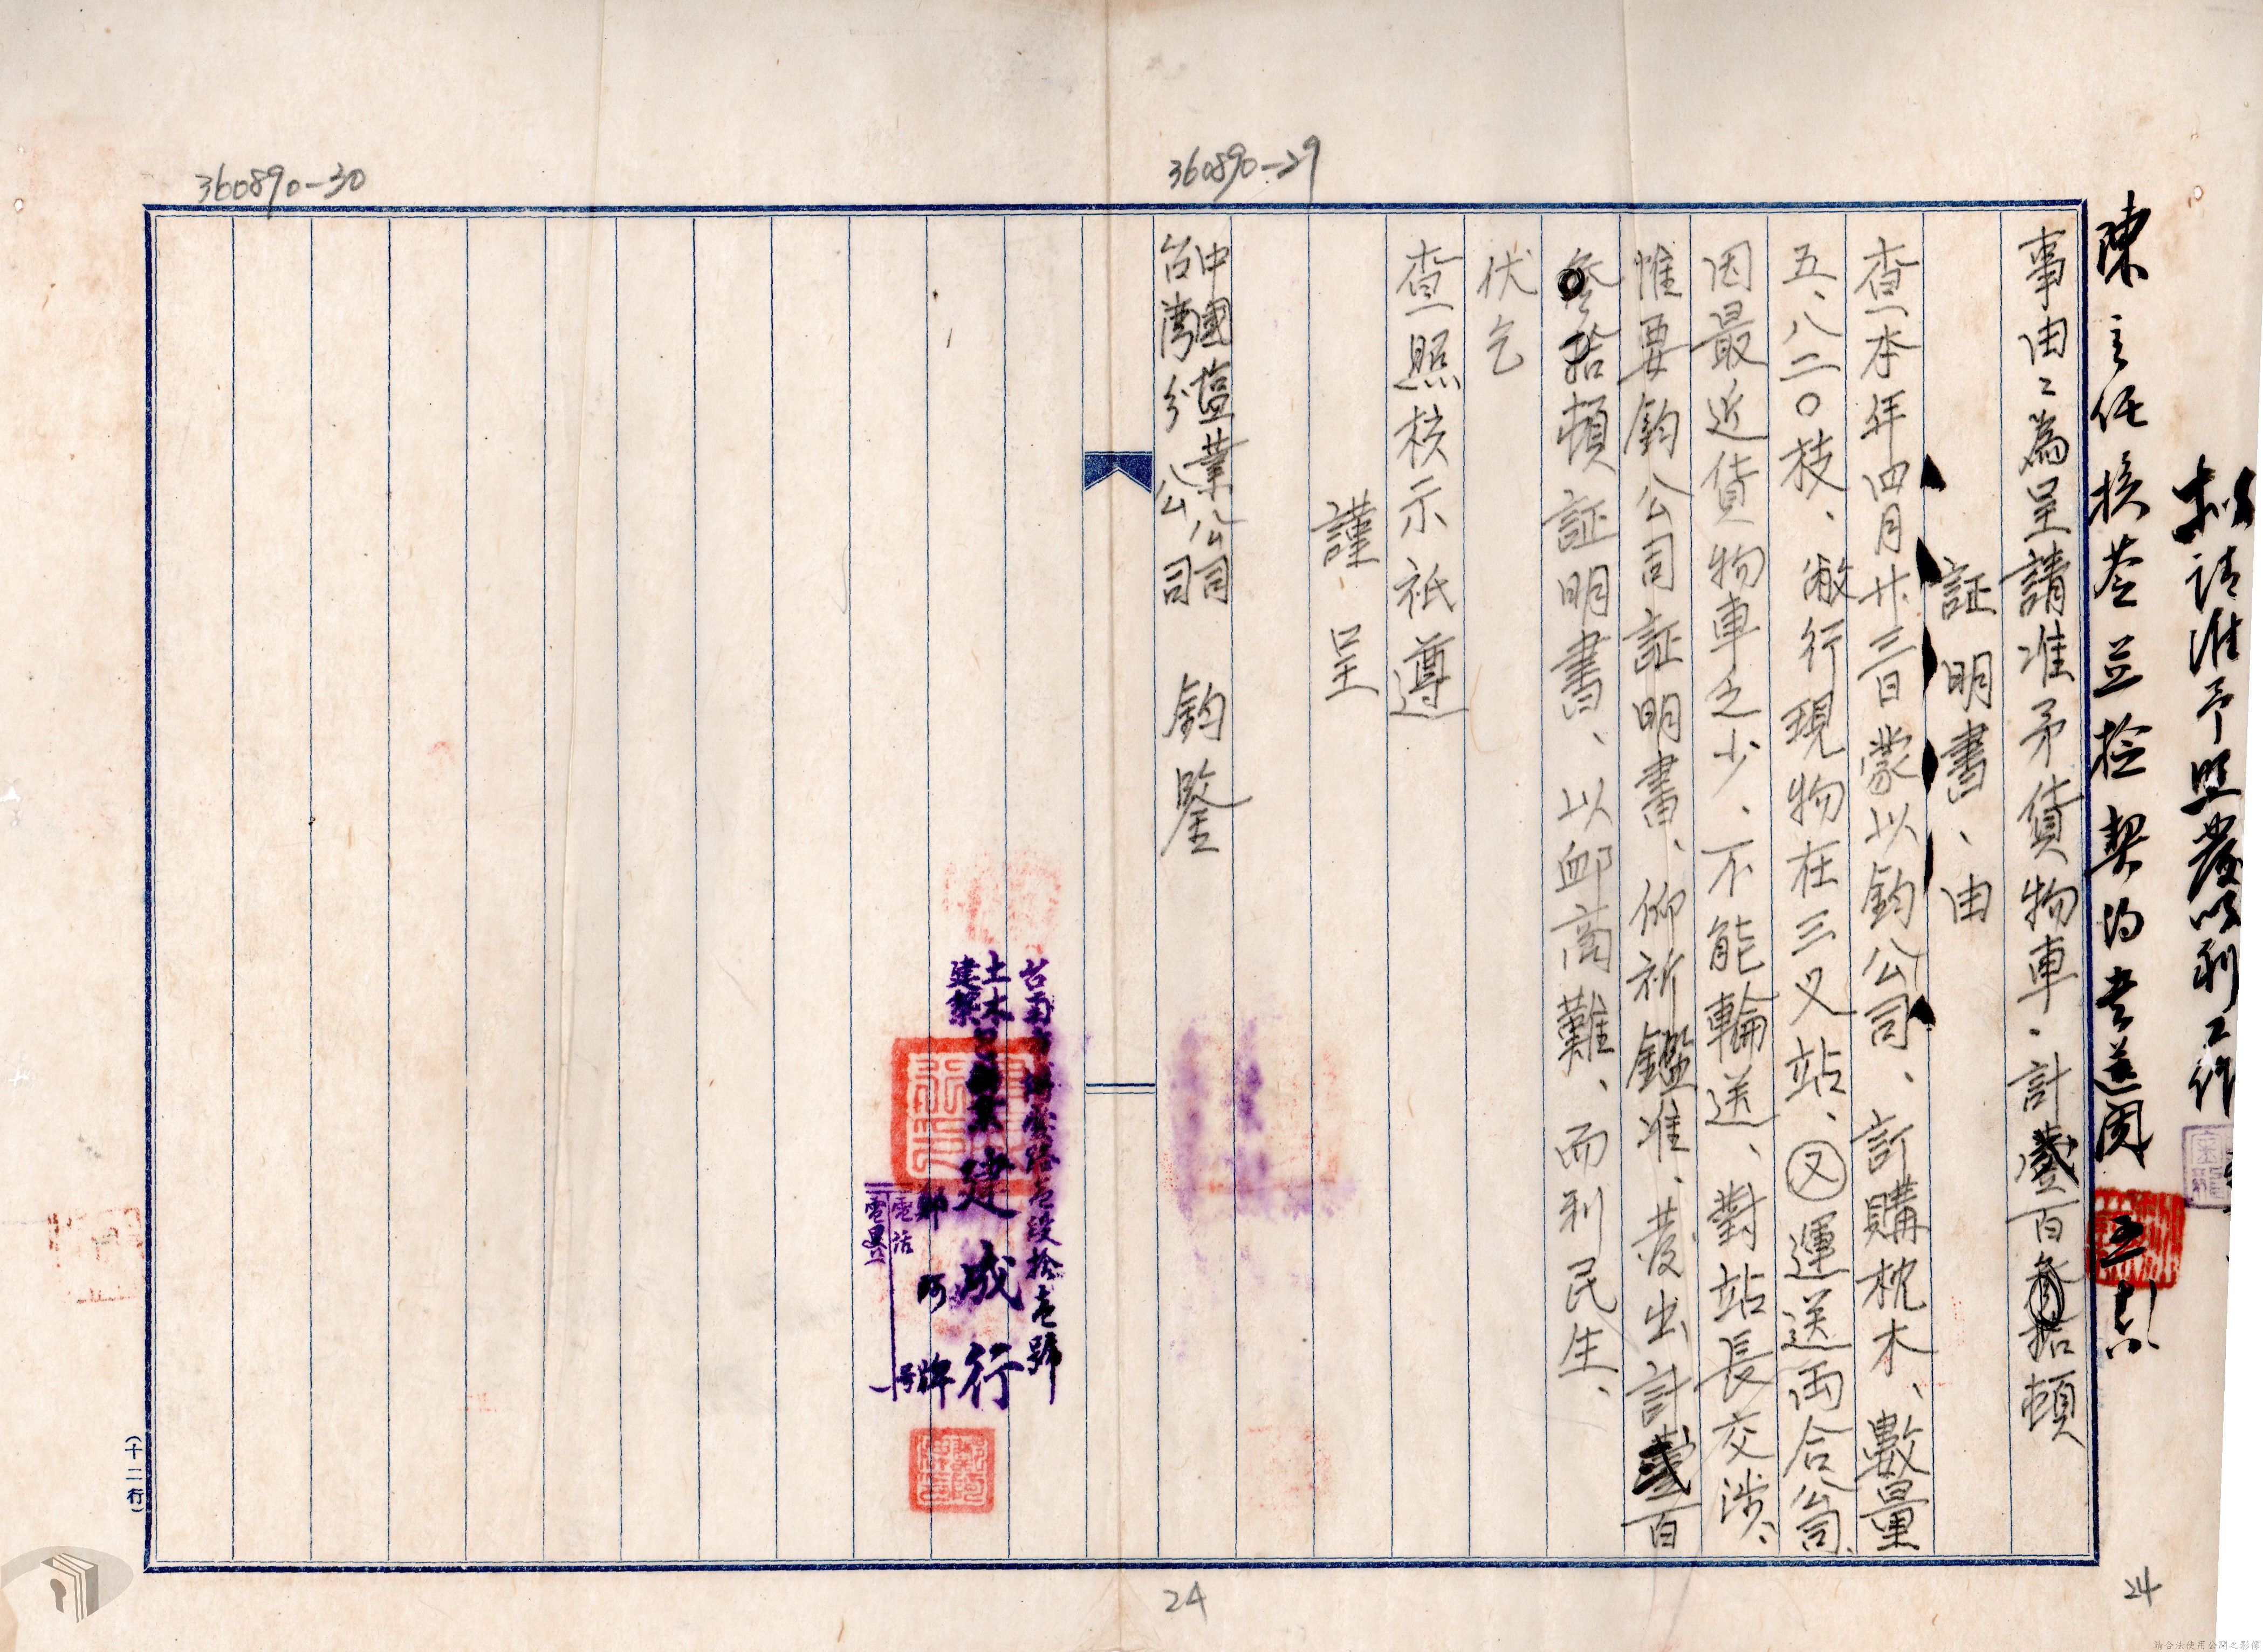 360890-29
360890-30
擬請准予照發以利工作
陳主任核签並撿契約書送閱
事由:為呈請准予貨物車、計壹百參拾頓
証明書、由
查本年四月廿三日蒙以鈞公司、訂購枕木、數量
五、八二〇枝、敝行現物在三叉站、又運送両合公司、
因最近貨物車乏少、不能輪送、對站長交涉、
惟要鈞公司証明書、仰祈鑑准、發出計壹百
參拾頓証明書、以卹商難、而利民生、
伏乞
查照核示祇遵
謹呈
中國塩業公司
台灣分公司 鈞鑒
台南市 路壱段拾壱號
土木
建築
建成行
鄭阿牌
電話
電畧
号
(十二行)
24
24
請合法使用公開之影像